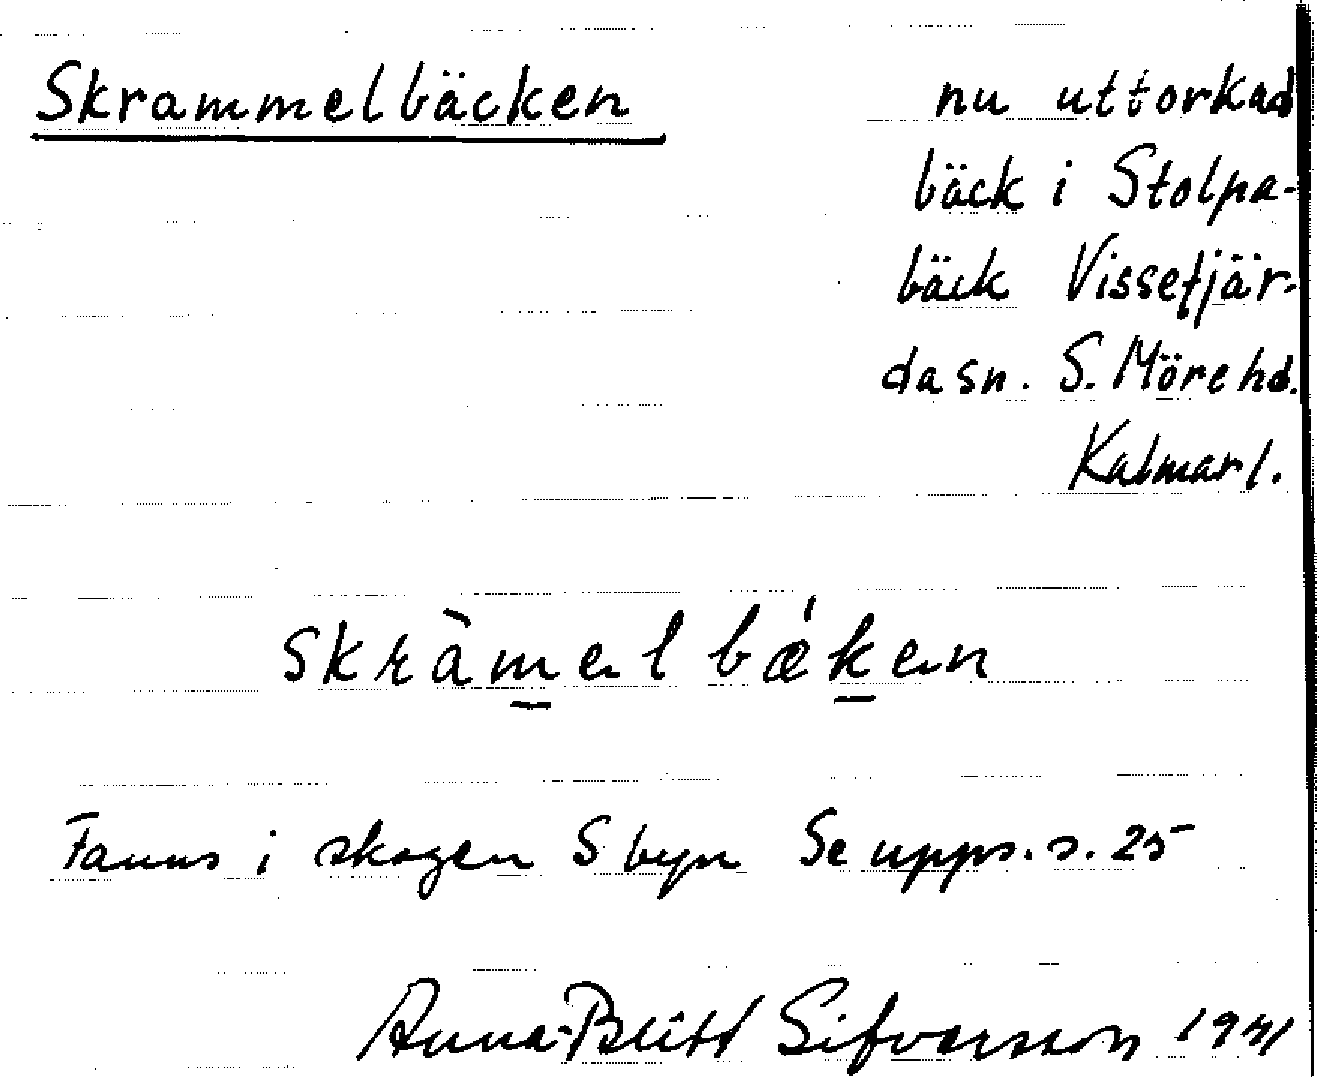 Skrammelbäcken
nu uttorkad
bäck i Stolpa-
bäck Vissefjär-
da sn. S. Möre hd.
Kalmar l.
skràmelbǽken
Fanns i skogen S byn Se upps. s. 25
Sifversson 1941